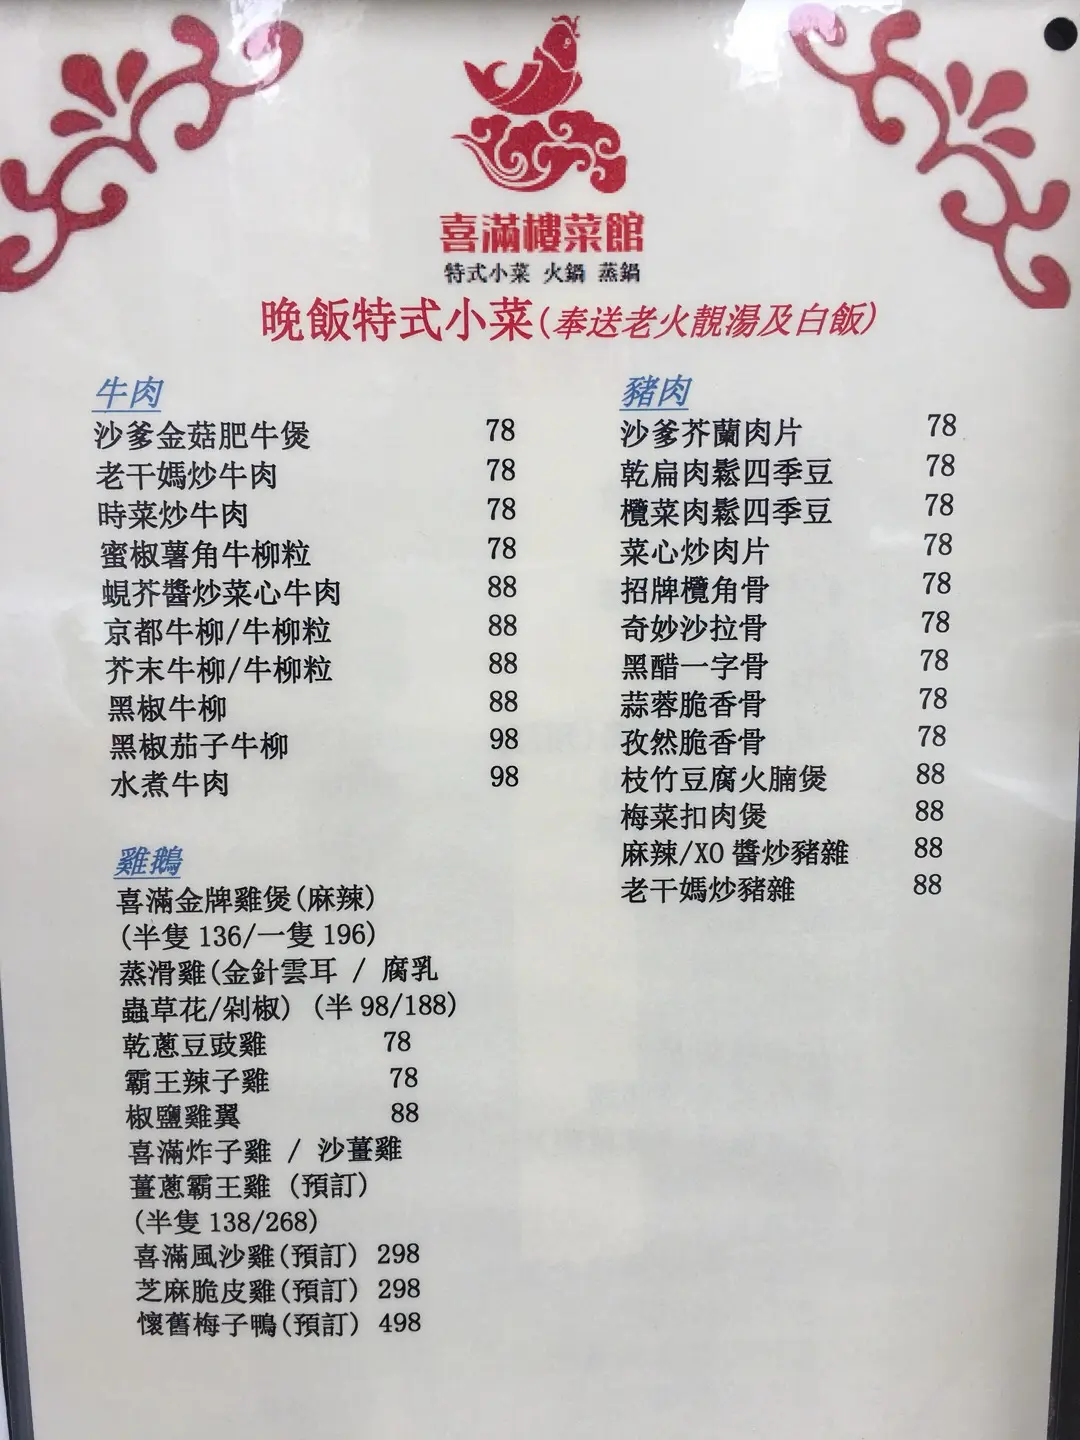 喜滿樓菜館
特式小菜 火鍋 蒸鍋
晚飯特式小菜(奉送老火靚湯及白飯)
牛肉
沙爹金菇肥牛煲 78
老干媽炒牛肉 78
時菜炒牛肉 78
蜜椒薯角牛柳粒 78
蜆芥醬炒菜心牛肉 88
京都牛柳/牛柳粒 88
芥末牛柳/牛柳粒 88
黑椒牛柳 88
黑椒茄子牛柳 98
水煮牛肉 98
雞鵝
喜滿金牌雞煲(麻辣)
(半隻 136/一隻 196)
蒸滑雞(金針雲耳 / 腐乳
蟲草花/剁椒) (半 98/188)
乾蔥豆豉雞 78
霸王辣子雞 78
椒鹽雞翼 88
喜滿炸子雞 / 沙薑雞
薑蔥霸王雞 (預訂)
(半隻 138/268)
喜滿風沙雞(預訂) 298
芝麻脆皮雞(預訂) 298
懷舊梅子鴨(預訂) 498
豬肉
沙爹芥蘭肉片 78
乾扁肉鬆四季豆 78
欖菜肉鬆四季豆 78
菜心炒肉片 78
招牌欖角骨 78
奇妙沙拉骨 78
黑醋一字骨 78
蒜蓉脆香骨 78
孜然脆香骨 78
枝竹豆腐火腩煲 88
梅菜扣肉煲 88
麻辣/XO 醬炒豬雜 88
老干媽炒豬雜 88